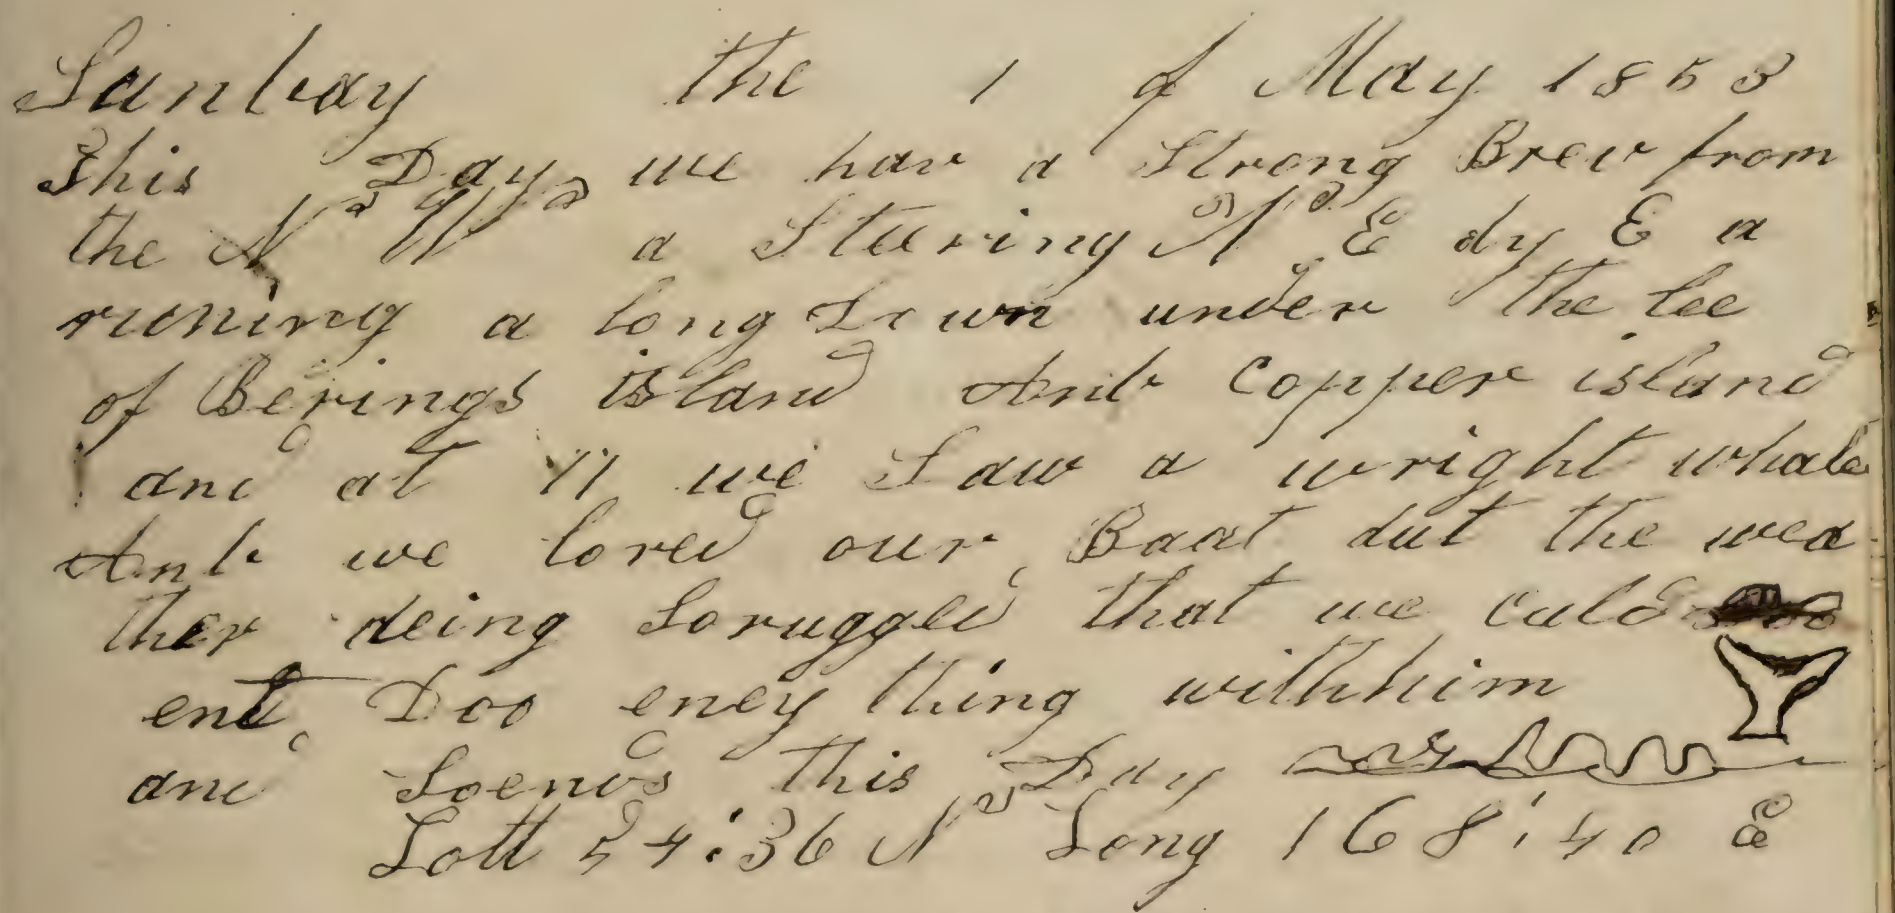 Sunbay the 1 of May 1853
This Day we hav a Strong Brew from
the N W a Sturing N E dy E a
runing a long Down under the lee
of Berings island Anb Copper island
and at 11 we Saw a wright whale
Anb we lored our Baat dut the wea
ther deing Sorugged that we culd
ent Doo eney thing withhim
and Soends this Day
Latt 54:36 N Long 168:40 E